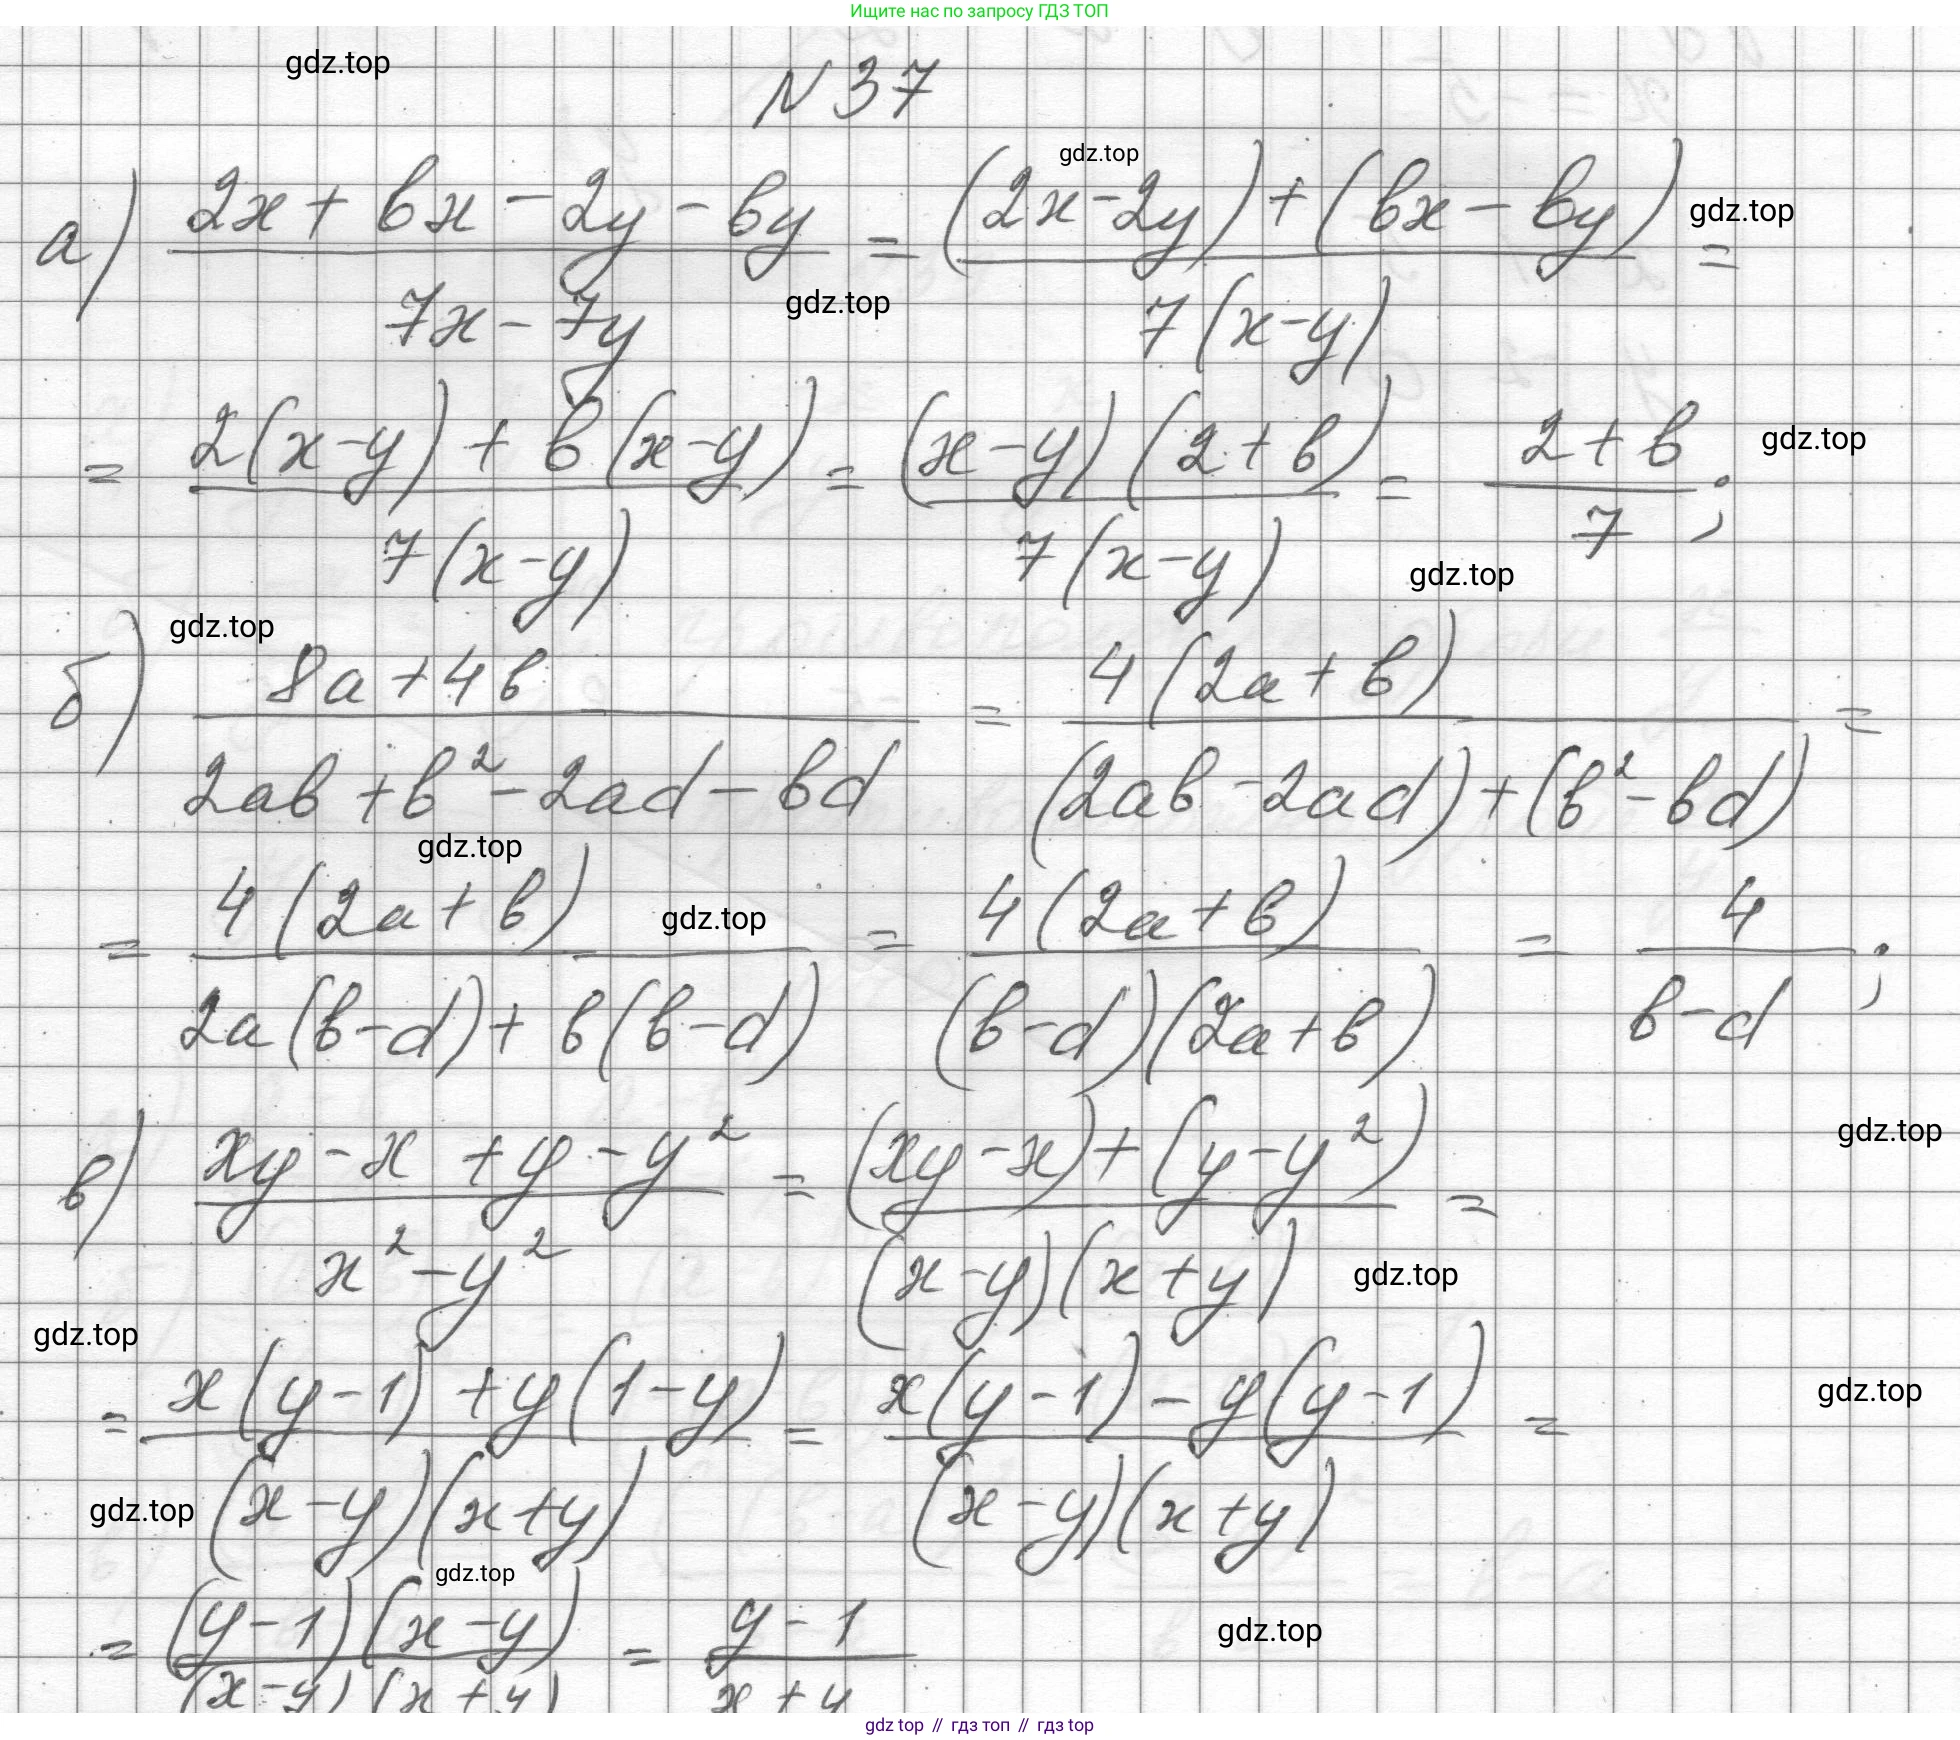 Ищите нас по запросу ГДЗ ТОП
gdz.top
N 37
gdz.top
а) (2x + bx - 2y - by)/(7x - 7y) = ((2x - 2y) + (bx - by))/(7(x - y)) =
gdz.top
gdz.top
= (2(x - y) + b(x - y))/(7(x - y)) = ((x - y)(2 + b))/(7(x - y)) = (2 + b)/7;
gdz.top
gdz.top
gdz.top
б) (8a + 4b)/(2ab + b² - 2ad - bd) = (4(2a + b))/((2ab - 2ad) + (b² - bd)) =
gdz.top
= (4(2a + b))/(2a(b - d) + b(b - d)) = (4(2a + b))/((b - d)(2a + b)) = 4/(b - d);
gdz.top
gdz.top
в) (xy - x + y - y²)/(x² - y²) = ((xy - x) + (y - y²))/((x - y)(x + y)) =
gdz.top
gdz.top
= (x(y - 1) + y(1 - y))/((x - y)(x + y)) = (x(y - 1) - y(y - 1))/((x - y)(x + y)) =
gdz.top
gdz.top
gdz.top
= ((y - 1)(x - y))/((x - y)(x + y)) = (y - 1)/(x + y)
gdz.top
gdz top // гдз топ // гдз top